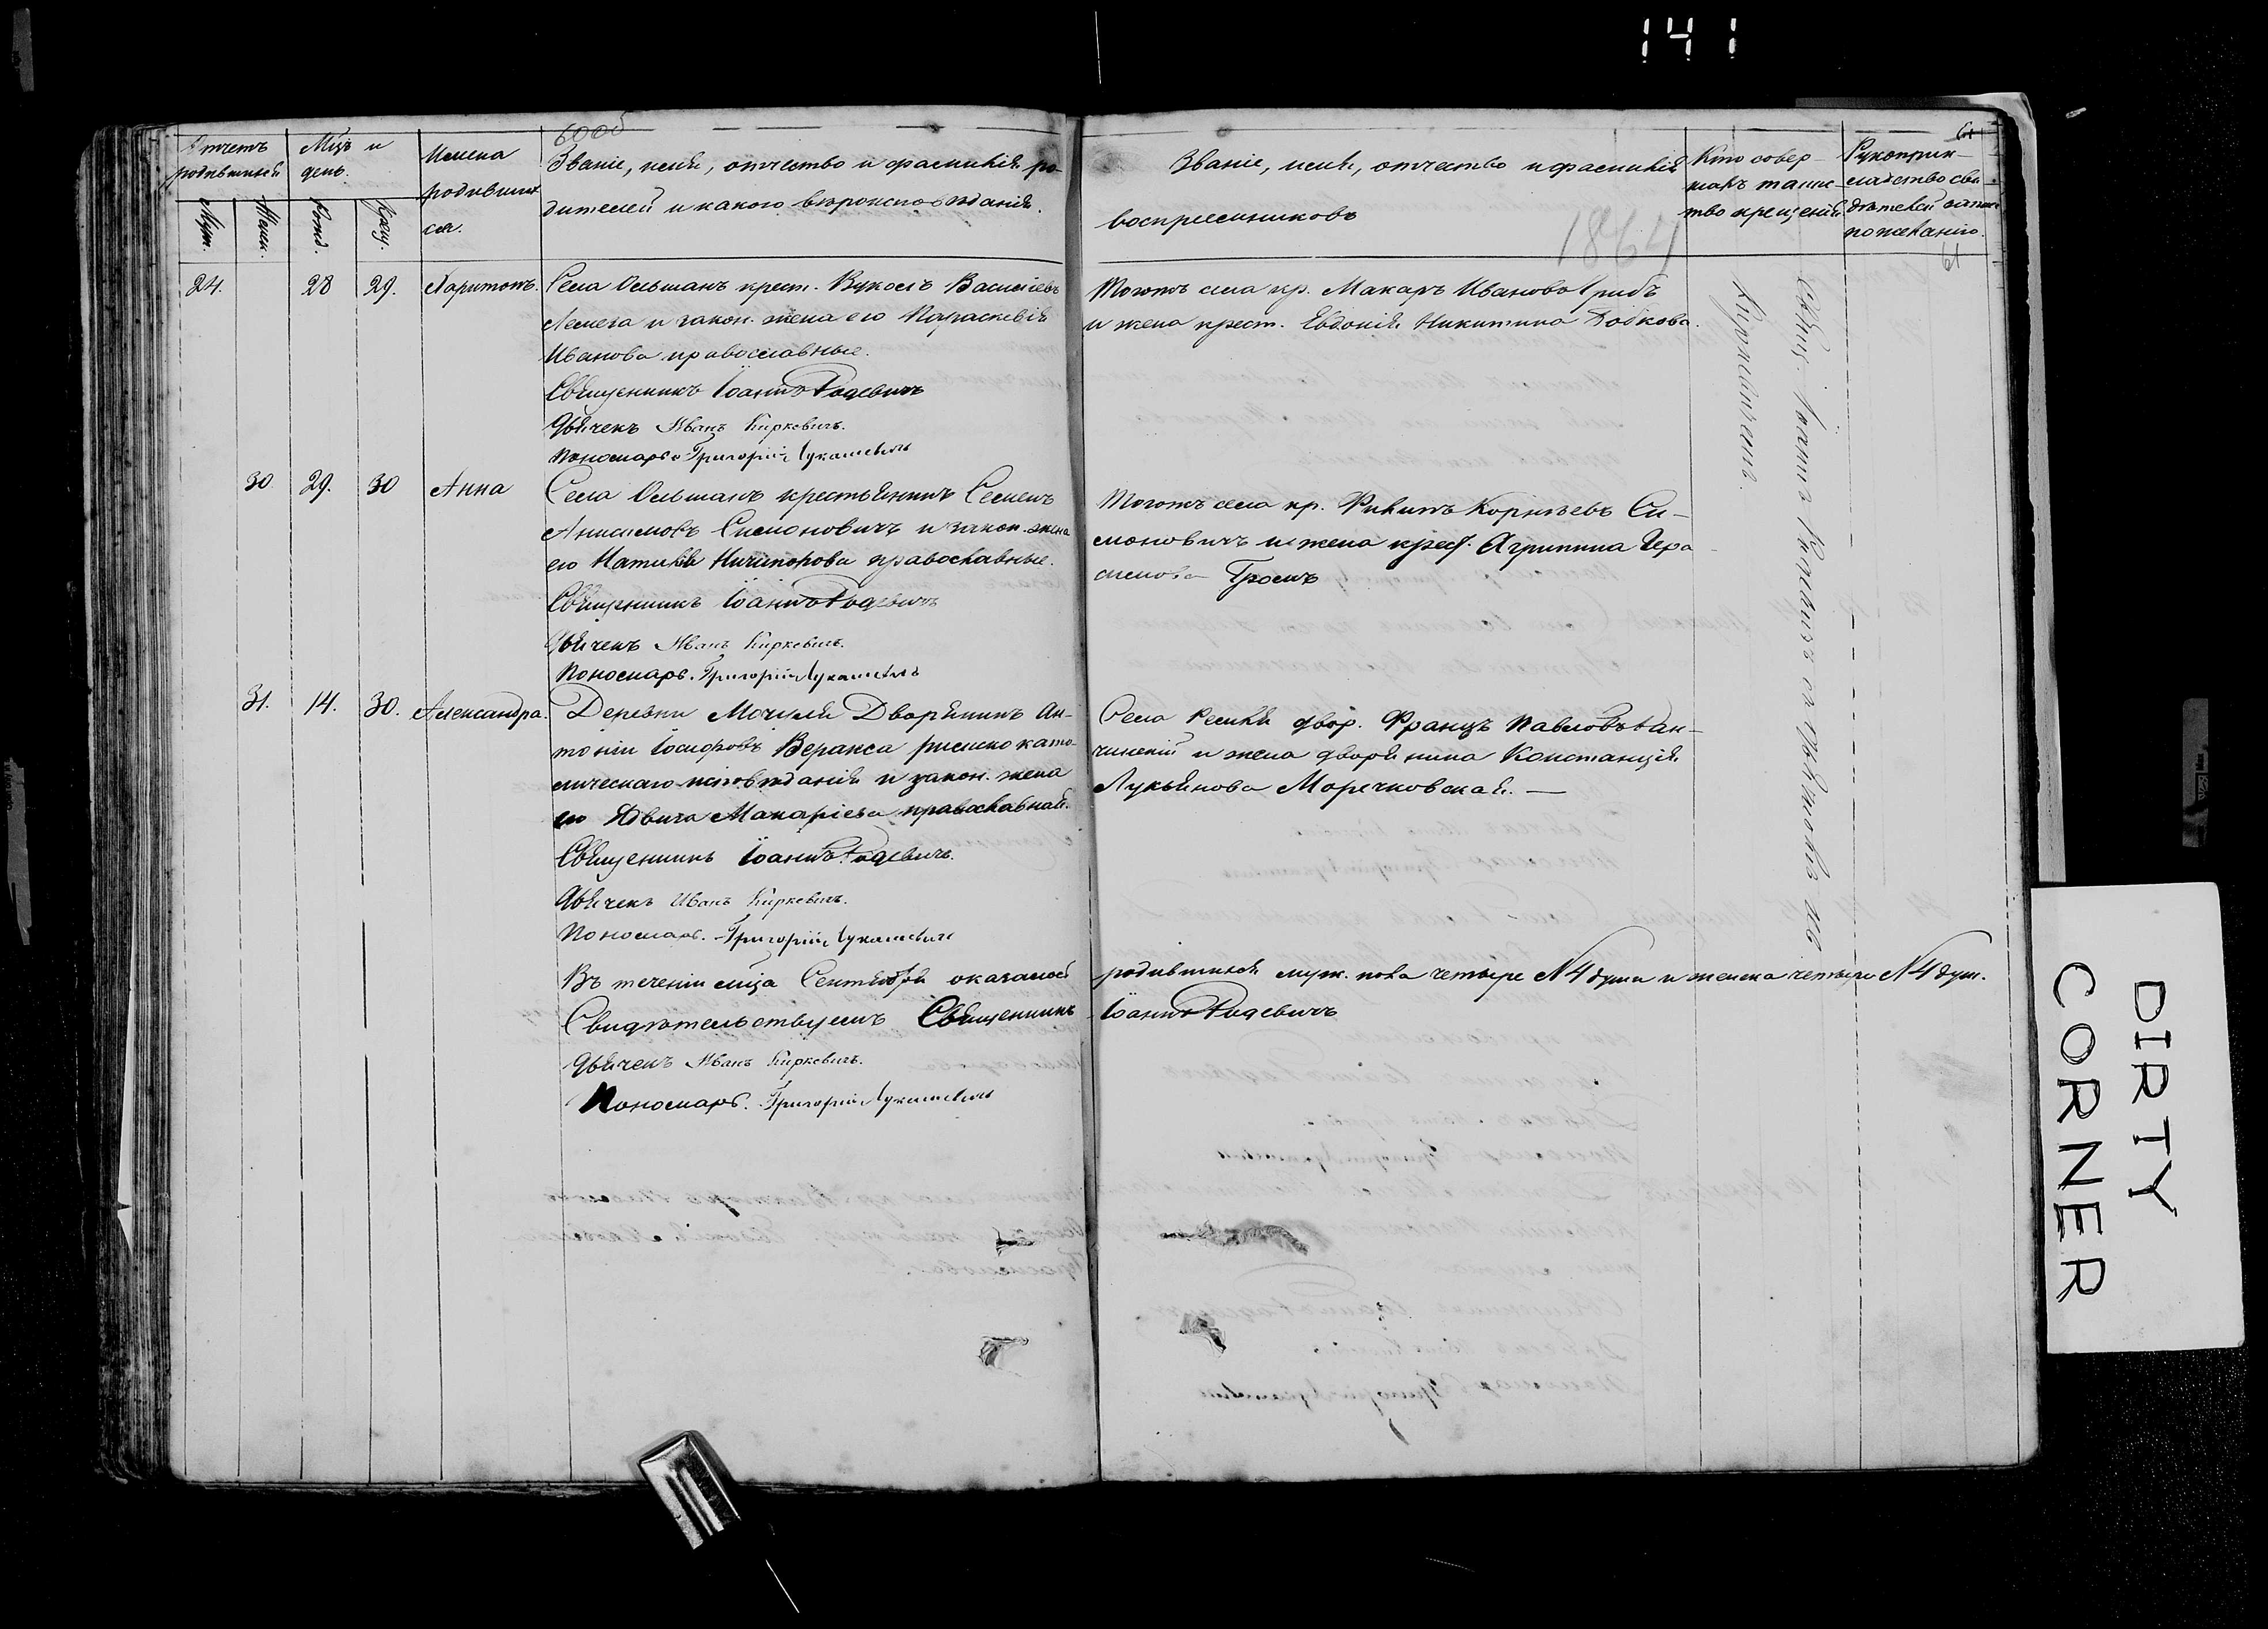 141
60об
Отчетъ родившихся
Мцъ и день.
Имена родившихся.
Званіе, имя, отчество и фамилія родителей и какого вѣроисповѣданія.
Муж. Жен. Рожд. Крещ.
Званіе, имя, отчество и фамилія воспреемниковъ
Кто совершалъ таинство крещенія.
Рукоприкладство свидѣтелей записи по желанію.
61
1864
61
24. 28 29. Харитонъ. Села Ольшанъ крест. Вуколъ Васильевъ
Лемеза и закон. жена его Параскевія
Иванова православные.
Священникъ Іоаннъ Родевичъ
Дьячекъ Иванъ Киркевичъ.
Пономарь Григорій Лукашевичъ
Тогожъ села кр. Макаръ Ивановъ Грибъ
и жена крест. Евдокія Никитина Бобкова.
30 29. 30 Анна Села Ольшанъ крестьянинъ Семенъ
Анисимовъ Симоновичъ и закон. жена
его Наталія Ничипорова православные.
Священникъ Іоаннъ Родевичъ
Дьячекъ Иванъ Киркевичъ.
Пономарь. Григорій Лукашевичъ
Тогожъ села кр. Филипъ Корнѣевъ Си-
моновичъ и жена крест. Агрипина Гера-
симова Громъ
31. 14. 30. Александра. Деревни Мочуля Дворянинъ Ан-
тоній Іосифовъ Веракса римско като-
лическаго исповѣданія и закон. жена
его Ядвига Макаріева православная.
Священникъ Іоаннъ Родевичъ.
Дьячекъ Иванъ Киркевичъ.
Пономарь. Григорій Лукашевичъ
Села двор. Францъ Павловъ
и жена дворянина Констанція
Лукьянова Моречковская. —
Свящ. Іоаннъ Родевичъ съ дьячкомъ Ив.
Киркевичемъ.
Въ теченіи мца Сентября оказалось родившихся муж. пола четыре N 4 души и женска четыре N 4 душ.
Свидѣтельствуемъ Священникъ Іоаннъ Родевичъ
Дьячекъ Иванъ Киркевичъ.
Пономарь. Григорій Лукашевичъ
DIRTY
CORNER